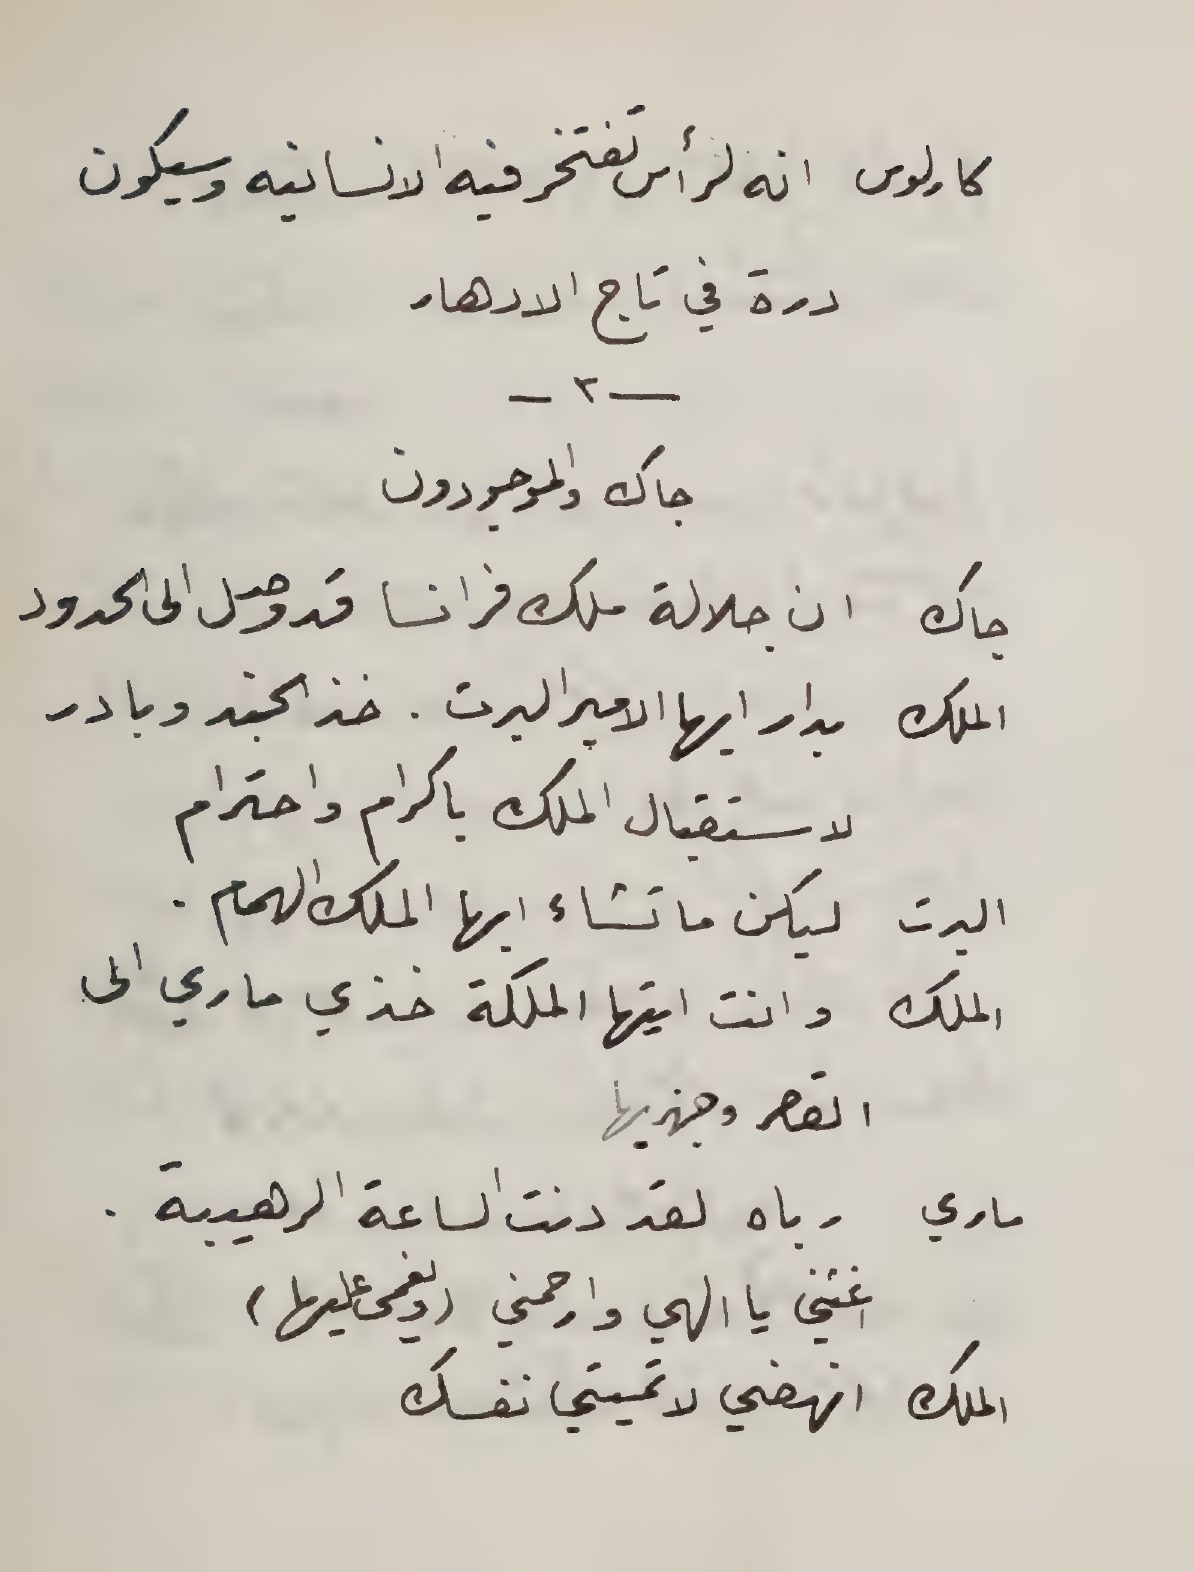 كارلوس انه لرأس تفتخر فيه الانسانيه وسيكون
درة في تاج الادهار
— ٣ —
جاك والموجودون
جاك ان جلالة ملك فرانسا قد وصل الى الحدود
الملك بدار ايها الامير البرت . خذ الجند وبادر
لاستقبال الملك باكرام واحترام
البرت ليكن ما تشاء ايها الملك الهمام .
الملك وانت ايتها الملكة خذي ماري الى
القصر وجهزيها
ماري رباه لقد دنت الساعة الرهيبة .
اغثني يا الهي وارحمني (ويغمى عليها)
الملك انهضي لا تميتي نفسك